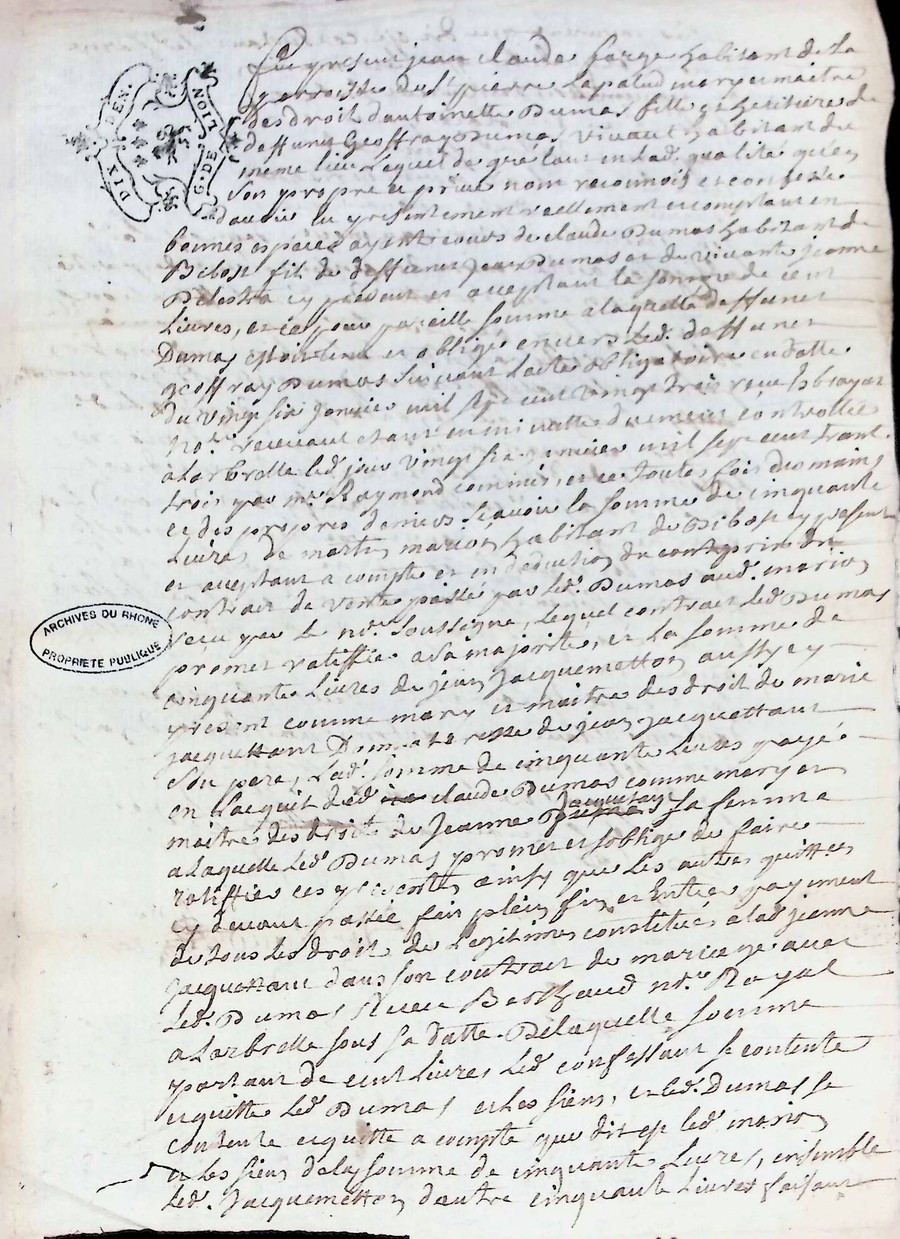 DIX DEN.
G. DE LION
Fut present jean claude Farge habitant de la
parroisse de St pierre Lapalud mary et maitre
des droit dantoinette Dumas fille et heritiere de
deffunt Geoffray Dumas vivant habitant du
meme lieu Lequel de gré tant en lad. qualité qu'en
Son propre et privé nom reconnois et confesse
davoir eu presentement reellement et comptant en
bonnes especes ayent cours de claude Dumas habitant de
Bibost fil de deffunct jean Dumas et de vivante jeanne
Delestra cy present et acceptant la somme de cent
Livres, et ce pour pareille somme a laquelle deffunct
Dumas estoit tenu et obligé envers Led. deffunct
geoffray Dumas Suivant lacte obligatoire en datte
du vingt six janvier mil sept cent vingt trois receu
No.re Royal duement controllée
a Larbrelle led. jour vingt six janvier mil sept cent
trois par m.r Raymond commis, et ce toutes fois des mains
et des propres deniers Scavoir la somme de cinquante
Livres de marion habitant de Bibost cy present
et acceptant a compte et en deduction du prix du
contrait de vente passé par led. Dumas aud. marion
receu par le no.re soussigné, lequel contrait led. Dumas
promet ratiffié a sa majorité, et la somme de
cinquante Livres de jean jacquemetton aussy cy
present comme mary et maitre des droit de marie
jacquettant de jean jacquettant
Son pere, Lad. somme de cinquante Livres payé
en l'acquit dud. claude Dumas comme mary et
maitre des droit de Jeanne Jacquetan sa femme
a Laquelle led. Dumas promet et soblige de faire
ratiffié ces presentes ainsy que les autres quittces
cy devant passée fair plein fin et entier payement
de tous les droit de Legitimes constitués a lad. jeanne
jacquettant dans son contrait de mariage avec
Led. Dumas Receu Berthaud no.re Royal
a Larbrelle sous sa datte. De laquelle somme
partant de cent Livres Led. confessant se contente
et quitte Led. Dumas et les siens, et led. Dumas se
contente et quitte a compte que dit est led. marion
et les siens de la somme de cinquante Livres, ensemble
Led. Jacquemetton d'autre cinquante Livres faisant
ARCHIVES DU RHONE
PROPRIETE PUBLIQUE